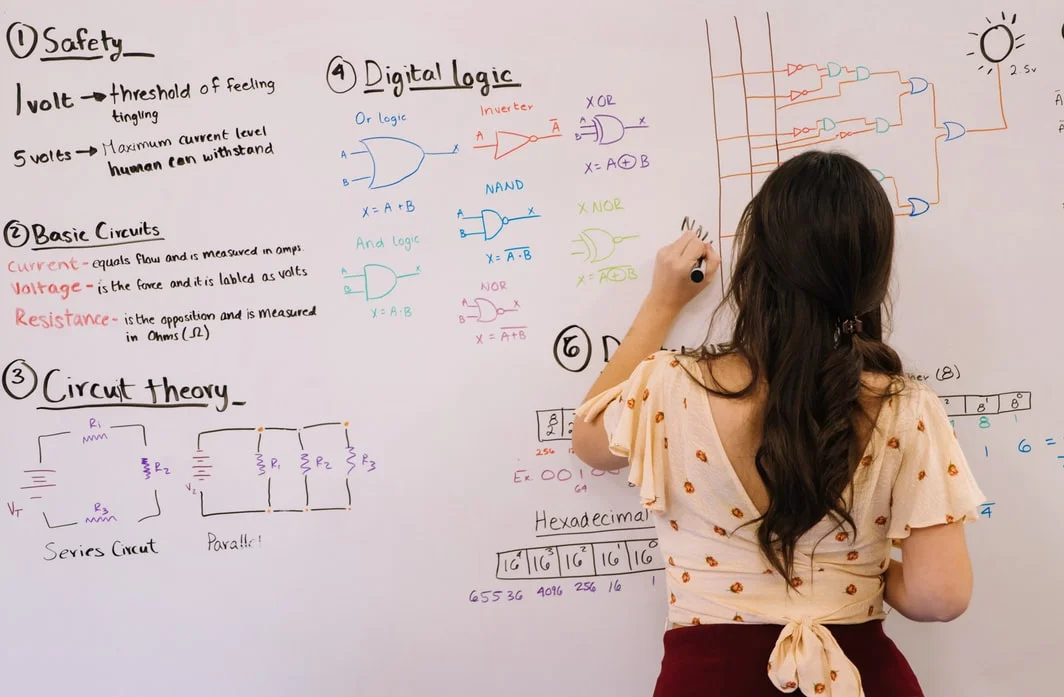 ① Safety
1 volt → threshold of feeling
tingling
5 volts → Maximum current level
human can withstand
② Basic Circuits
Current - equals flow and is measured in amps.
Voltage - is the force and it is labled as volts
Resistance - is the opposition and is measured
in Ohms (Ω)
③ Circuit theory
R₁
R₂
R₃
VT
Series Circut
R₁
R₂
R₃
Parallel
④ Digital logic
Or logic
A
B
X
X = A + B
Inverter
A
A̅
XOR
A
B
X
X = A ⊕ B
NAND
A
B
X
X = \overline{A · B}
X NOR
X = \overline{A ⊕ B}
And logic
A
B
X
X = A · B
NOR
A
B
X
X = \overline{A + B}
2.5v
(8)
8¹ 8⁰
8 1
1 6 =
4
256
Ex. 001
64
Hexadecimal
16⁴ 16³ 16² 16¹ 16⁰
65536 4096 256 16 1